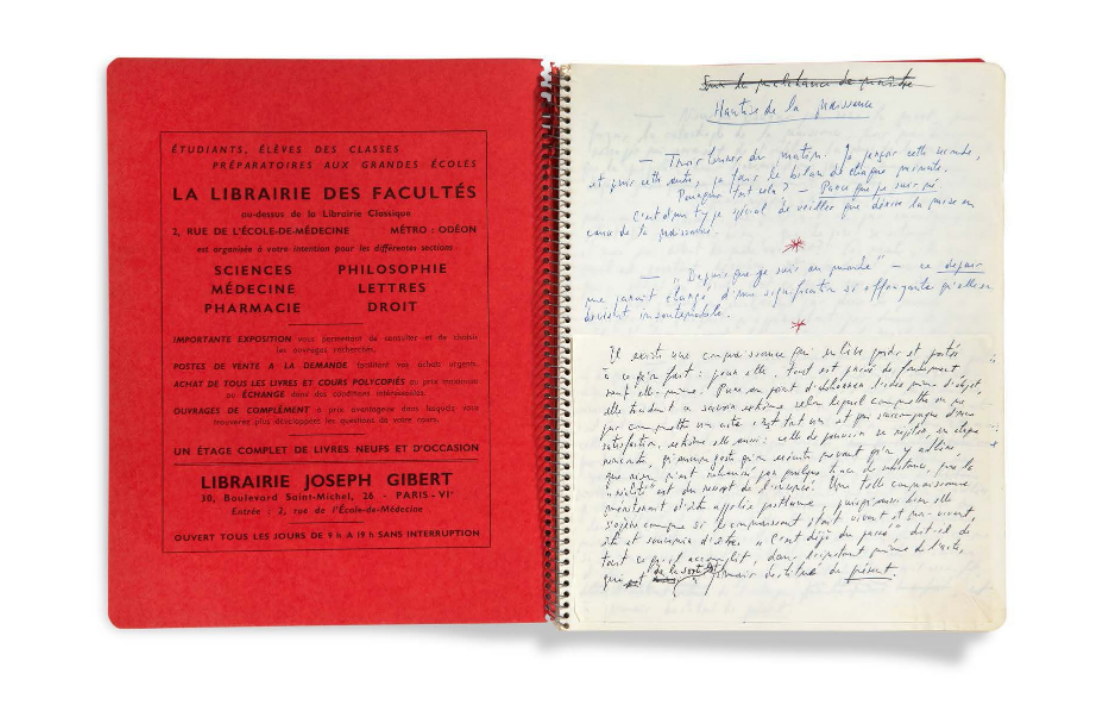 Sur le                de naître
Hantise de la naissance
— Trois heures du matin. Je perçois cette seconde,
et puis cette autre, je fais le bilan de chaque minute.
Pourquoi tout cela? — Parce que je suis né.
C'est d'un type spécial de veilles que dérive la mise en
cause de la naissance.
— "Depuis que je suis au monde" — ce depuis
me paraît chargé d'une signification si effrayante qu'elle en
devient insoutenable.
Il existe une connaissance qui enlève poids et portée
à ce qu'on fait : pour elle, tout est privé de fondement
sauf elle-même. Pure au point d'abhorrer l'idée même d'objet,
elle traduit ce savoir extrême selon lequel commettre ou ne
pas commettre un acte c'est tout un et qui s'accompagne d'une
satisfaction, extrême elle aussi : celle de pouvoir se répéter, en chaque
rencontre, qu'aucun geste qu'on exécute ne vaut qu'on y adhère,
que rien n'est rehaussé par quelque trace de substance, que la
"réalité" est du ressort de l'insensé. Une telle connaissance
mériterait d'être appelée posthume, puisqu'aussi bien elle
s'opère comme si le connaissant était vivant et non-vivant,
être et souvenir d'être. "C'est déjà du passé" dit-il de
tout ce qu'il accomplit, dans l'instant même de l'acte,
qui est de la sorte à jamais destitué de présent.
ÉTUDIANTS, ÉLÈVES DES CLASSES
PRÉPARATOIRES AUX GRANDES ÉCOLES
LA LIBRAIRIE DES FACULTÉS
au-dessus de la Librairie Classique
2, RUE DE L'ÉCOLE-DE-MÉDECINE MÉTRO : ODÉON
est organisée à votre intention pour les différentes sections
SCIENCES PHILOSOPHIE
MÉDECINE LETTRES
PHARMACIE DROIT
IMPORTANTE EXPOSITION vous permettant de consulter et de choisir
les ouvrages recherchés.
POSTES DE VENTE A LA DEMANDE facilitant vos achats urgents.
ACHAT DE TOUS LES LIVRES ET COURS POLYCOPIÉS au prix maximum
ou ÉCHANGE dans des conditions intéressantes.
OUVRAGES DE COMPLÉMENT à prix avantageux dans lesquels vous
trouverez plus développées les questions de votre cours.
UN ÉTAGE COMPLET DE LIVRES NEUFS ET D'OCCASION
LIBRAIRIE JOSEPH GIBERT
30, Boulevard Saint-Michel, 26 - PARIS-VIe
Entrée : 2, rue de l'École-de-Médecine
OUVERT TOUS LES JOURS DE 9 h A 19 h SANS INTERRUPTION